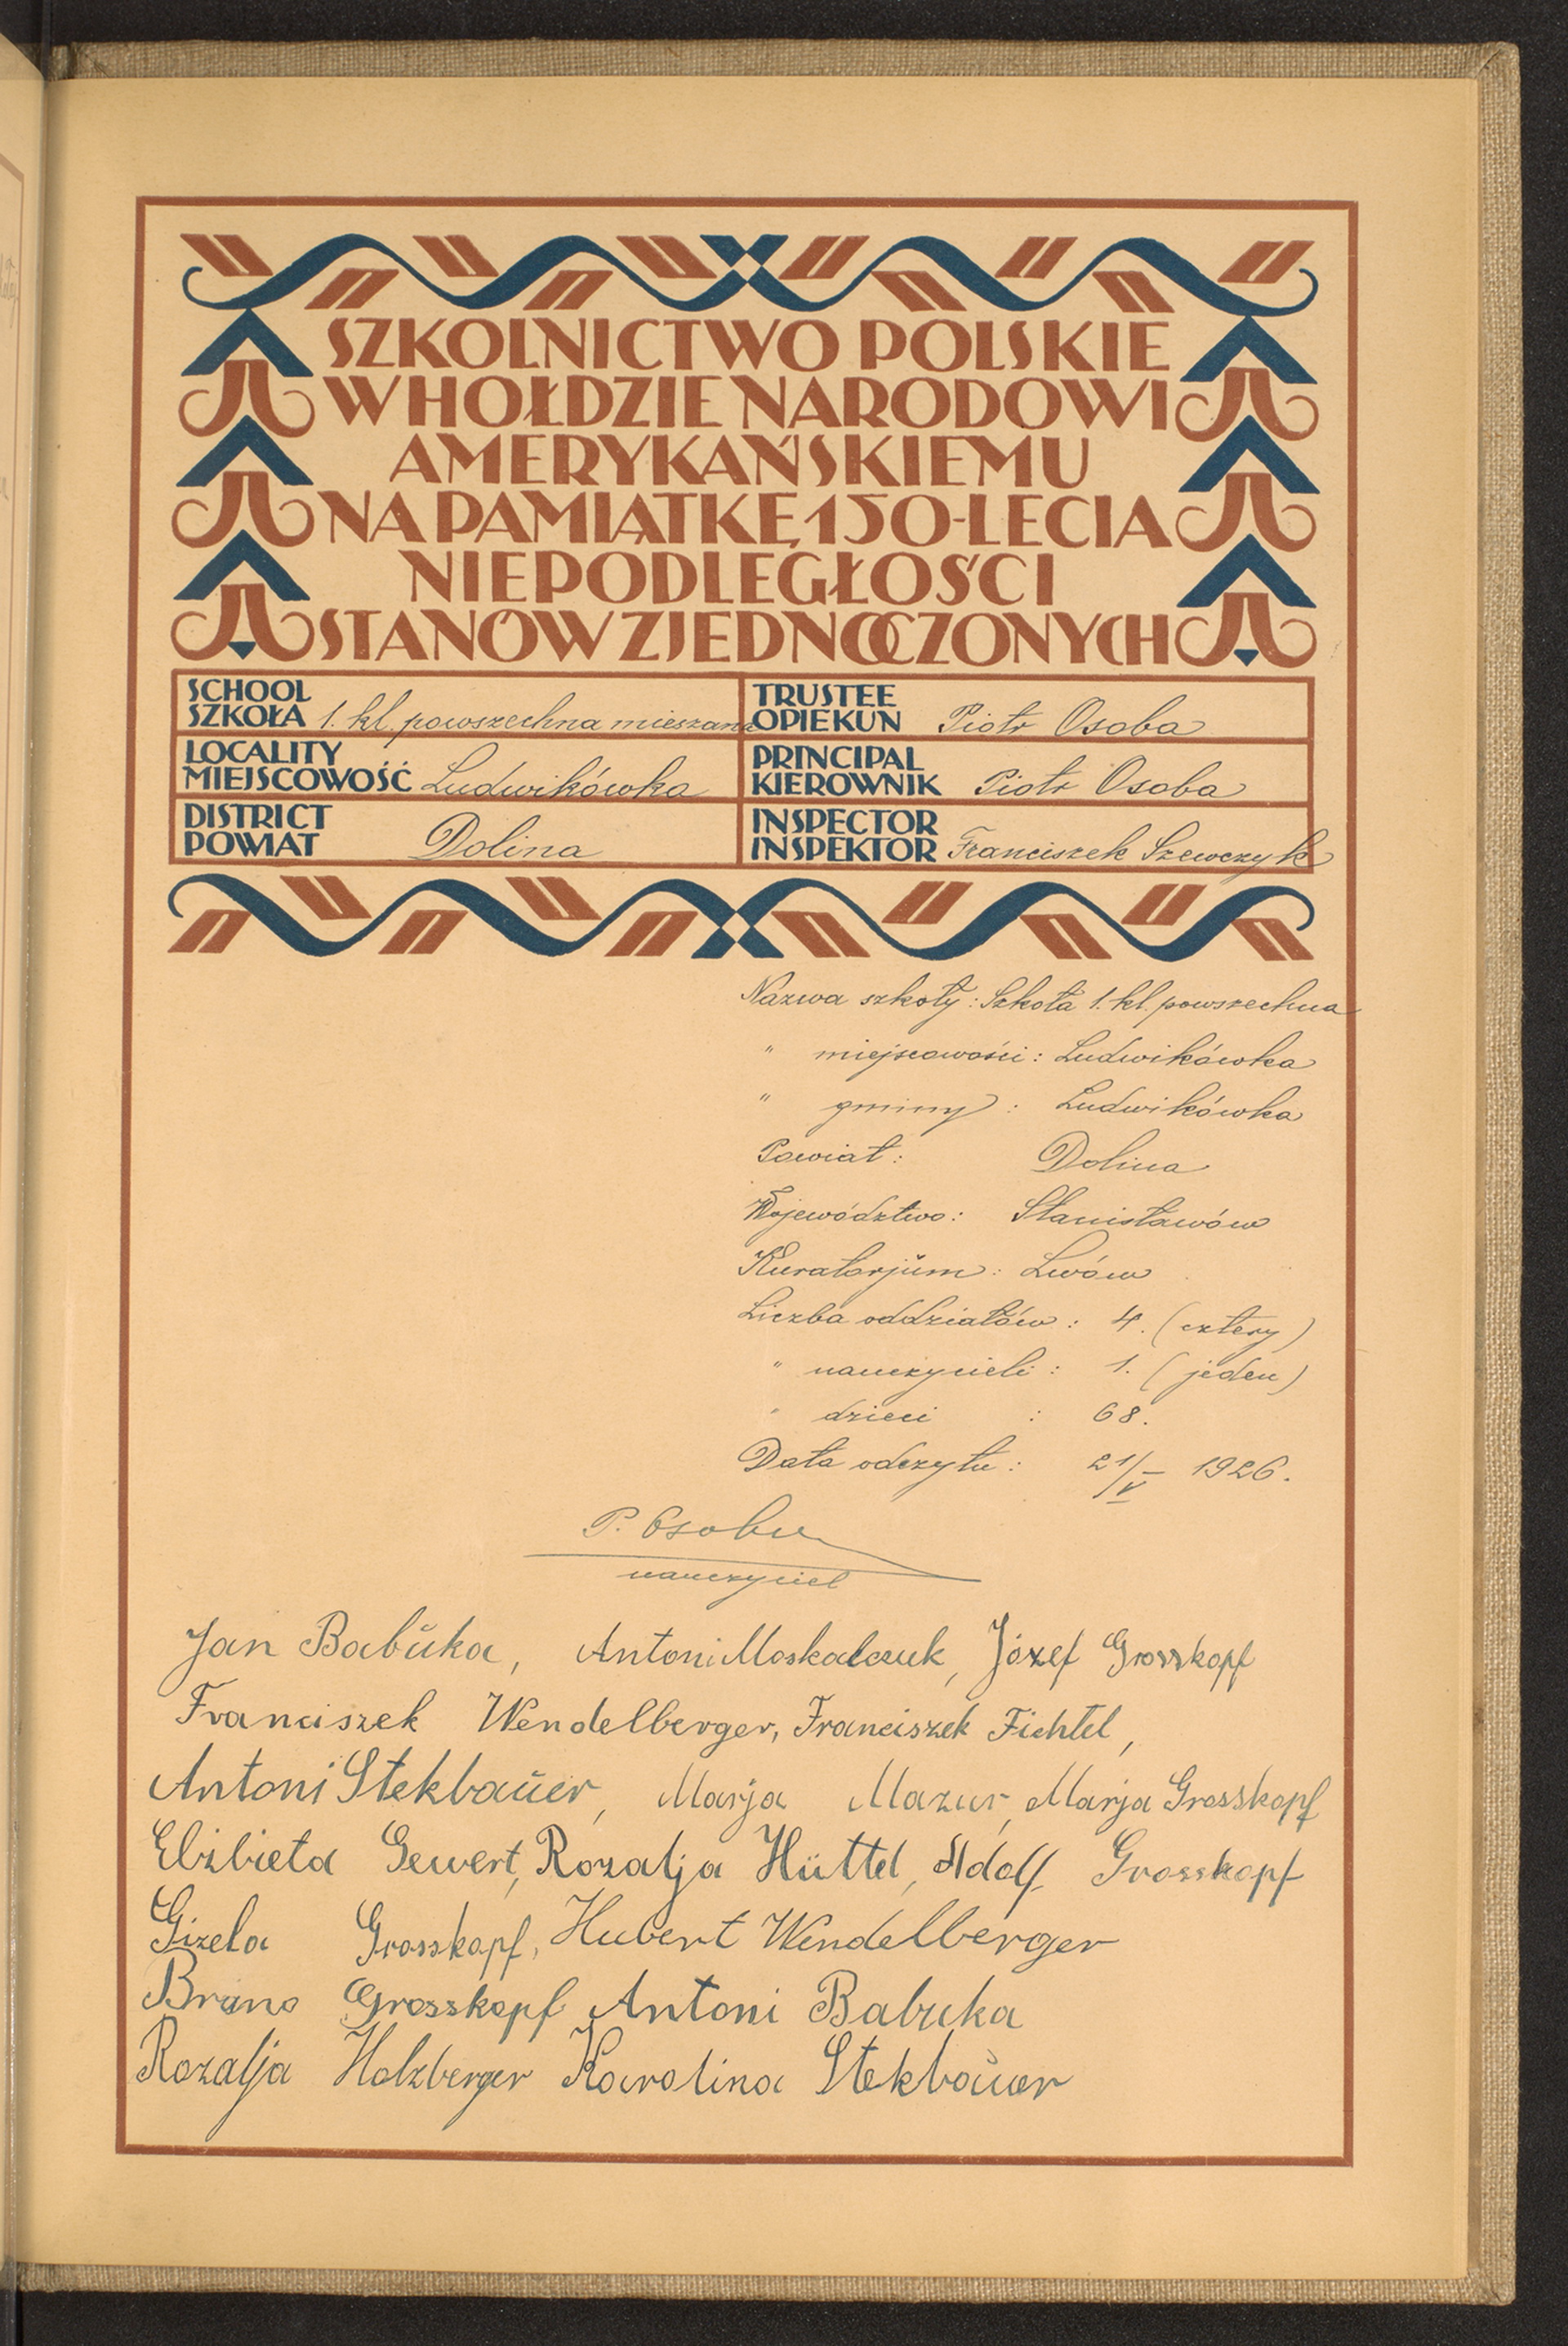 SZKOLNICTWO POLSKIE
W HOŁDZIE NARODOWI
AMERYKAŃSKIEMU
NA PAMIĄTKĘ 150-LECIA
NIEPODLEGŁOŚCI
STANÓW ZJEDNOCZONYCH
SCHOOL
SZKOŁA 1. kl. powszechna mieszana
TRUSTEE
OPIEKUN Piotr Osoba
LOCALITY
MIEJSCOWOŚĆ Ludwikówka
PRINCIPAL
KIEROWNIK Piotr Osoba
DISTRICT
POWIAT Dolina
INSPECTOR
INSPEKTOR Franciszek Szewczyk
Nazwa szkoły: Szkoła 1. kl. powszechna
" miejscowości: Ludwikówka
" gminy: Ludwikówka
Powiat: Dolina
Województwo: Stanisławów
Kuratorjŭm: Lwów
Liczba oddziałów: 4. (cztery)
" nauczycieli: 1. (jeden)
" dzieci: 68.
Data odczytu: 21/V 1926.
P. Osoba
nauczyciel
Jan Babŭka, Antoni Moskalczuk, Józef Grosskopf
Franciszek Wendelberger, Franciszek Fichtel,
Antoni Stekbaŭer, Marja Mazur, Marja Grosskopf
Elżbieta Gewert, Rozalja Hüttel, Adolf Grosskopf
Gizela Grosskopf, Hubert Wendelberger
Bruno Grosskopf Antoni Babuka
Rozalja Holzberger Karolina Stekbaŭer